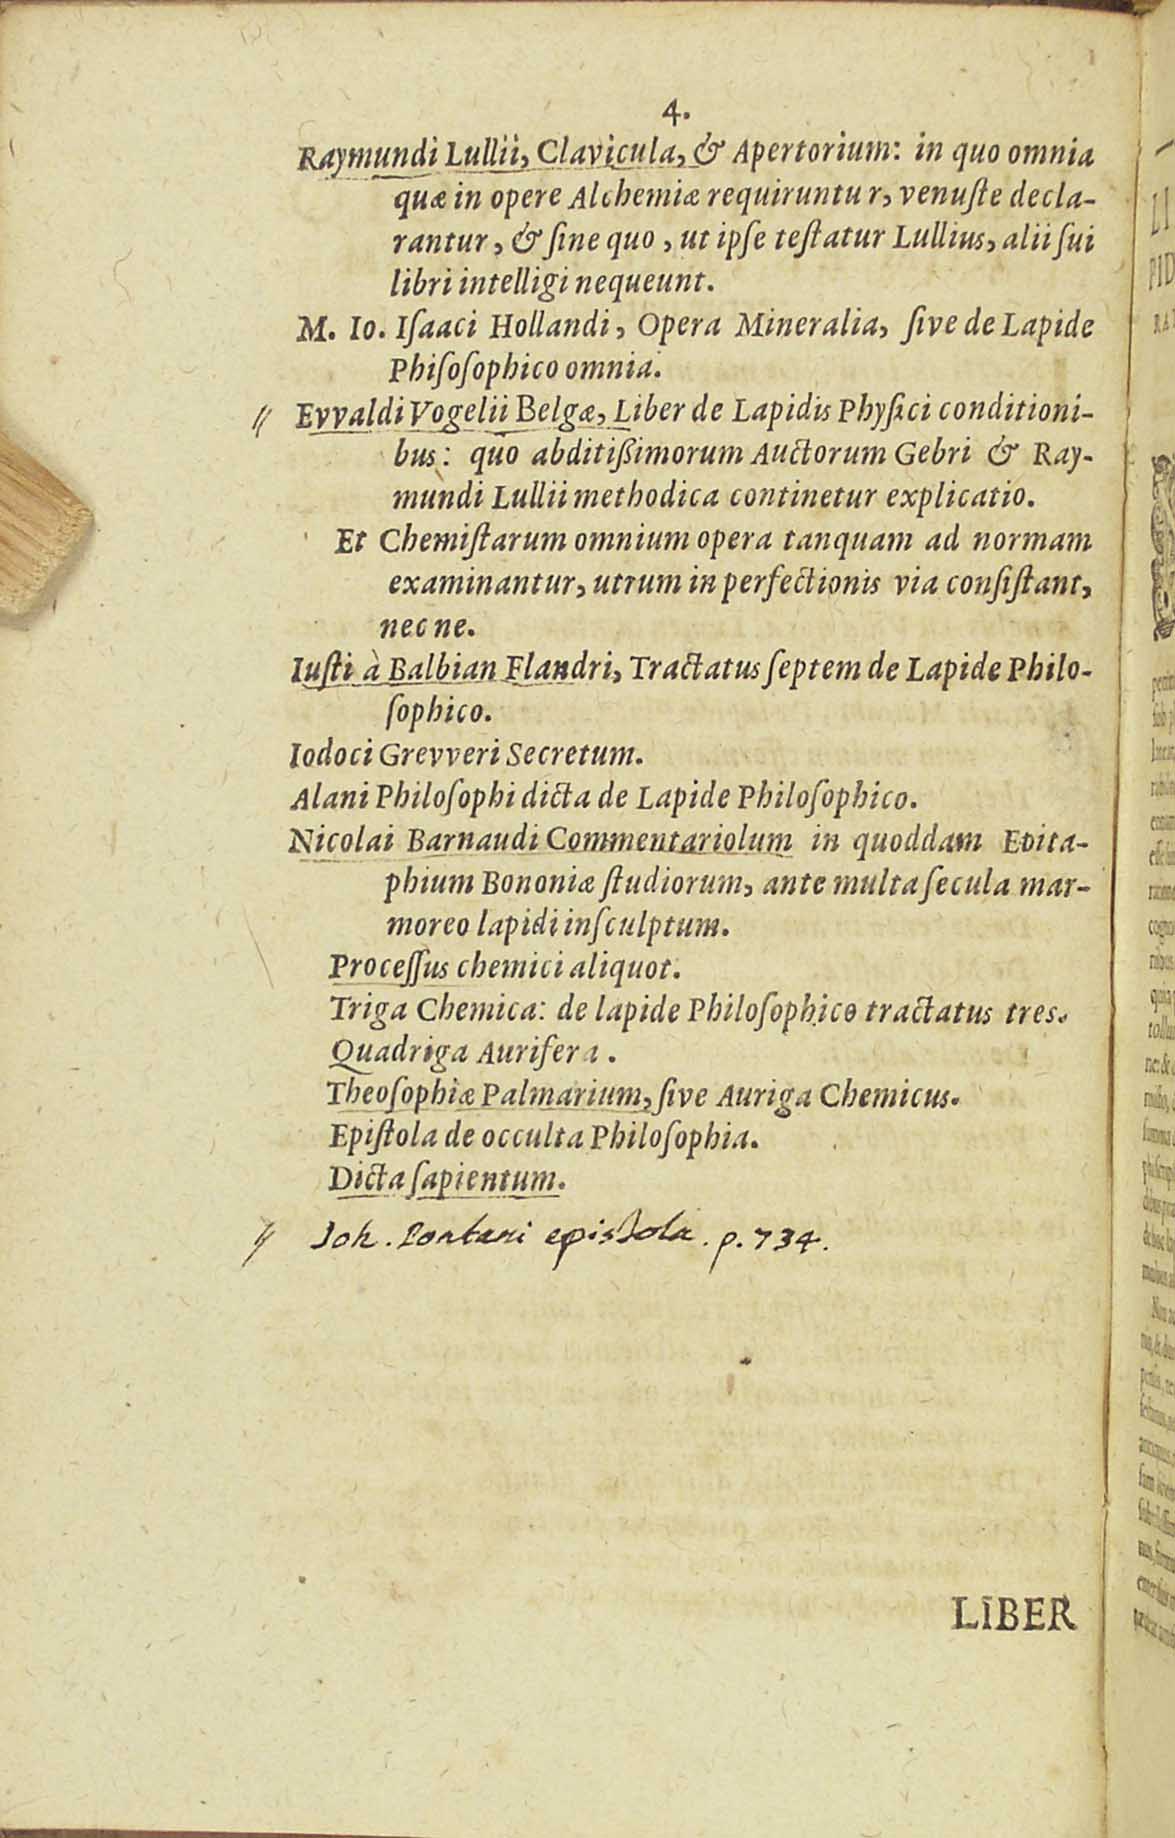 4.
Raymundi Lullii, Clavicula, & Apertorium: in quo omnia
quæ in opere Alchemiæ requiruntur, venuſte decla-
rantur, & ſine quo, ut ipſe teſtatur Lullius, alii ſui
libri intelligi nequeunt.
M. Io. Iſaaci Hollandi, Opera Mineralia, ſive de Lapide
Phiſoſophico omnia.
// Evvaldi Vogelii Belgæ, Liber de Lapidis Phyſici conditioni-
bus: quo abditißimorum Auctorum Gebri & Ray-
mundi Lullii methodica continetur explicatio.
Et Chemiſtarum omnium opera tanquam ad normam
examinantur, utrum in perfectionis via conſiſtant,
nec ne.
Iuſti à Balbian Flandri, Tractatus ſeptem de Lapide Philo-
ſophico.
Iodoci Grevveri Secretum.
Alani Philoſophi dicta de Lapide Philoſophico.
Nicolai Barnaudi Commentariolum in quoddam Epita-
phium Bononiæ ſtudiorum, ante multa ſecula mar-
moreo lapidi inſculptum.
Proceſſus chemici aliquot.
Triga Chemica: de lapide Philoſophico tractatus tres.
Quadriga Aurifera.
Theoſophiæ Palmarium, ſive Auriga Chemicus.
Epiſtola de occulta Philoſophia.
Dicta ſapientum.
// Joh. Pontani epistola. p. 734.
LIBER